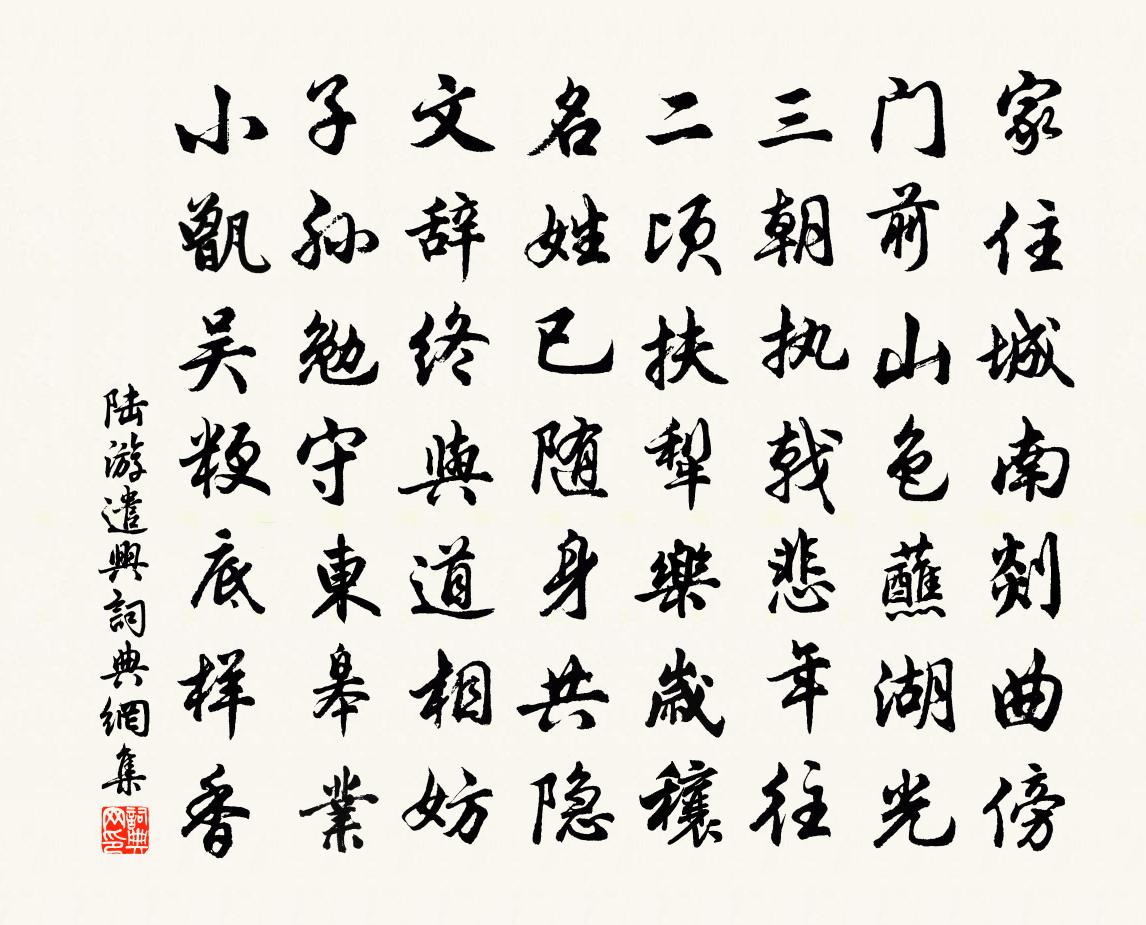 家住城南剡曲傍
门前山色蘸湖光
三朝执戟悲年往
二顷扶犁樂歲穰
名姓已随身共隐
文辞终與道相妨
子孙勉守東皋業
小甑吴粳底样香
陆游遣興詞典網集
詞典网印